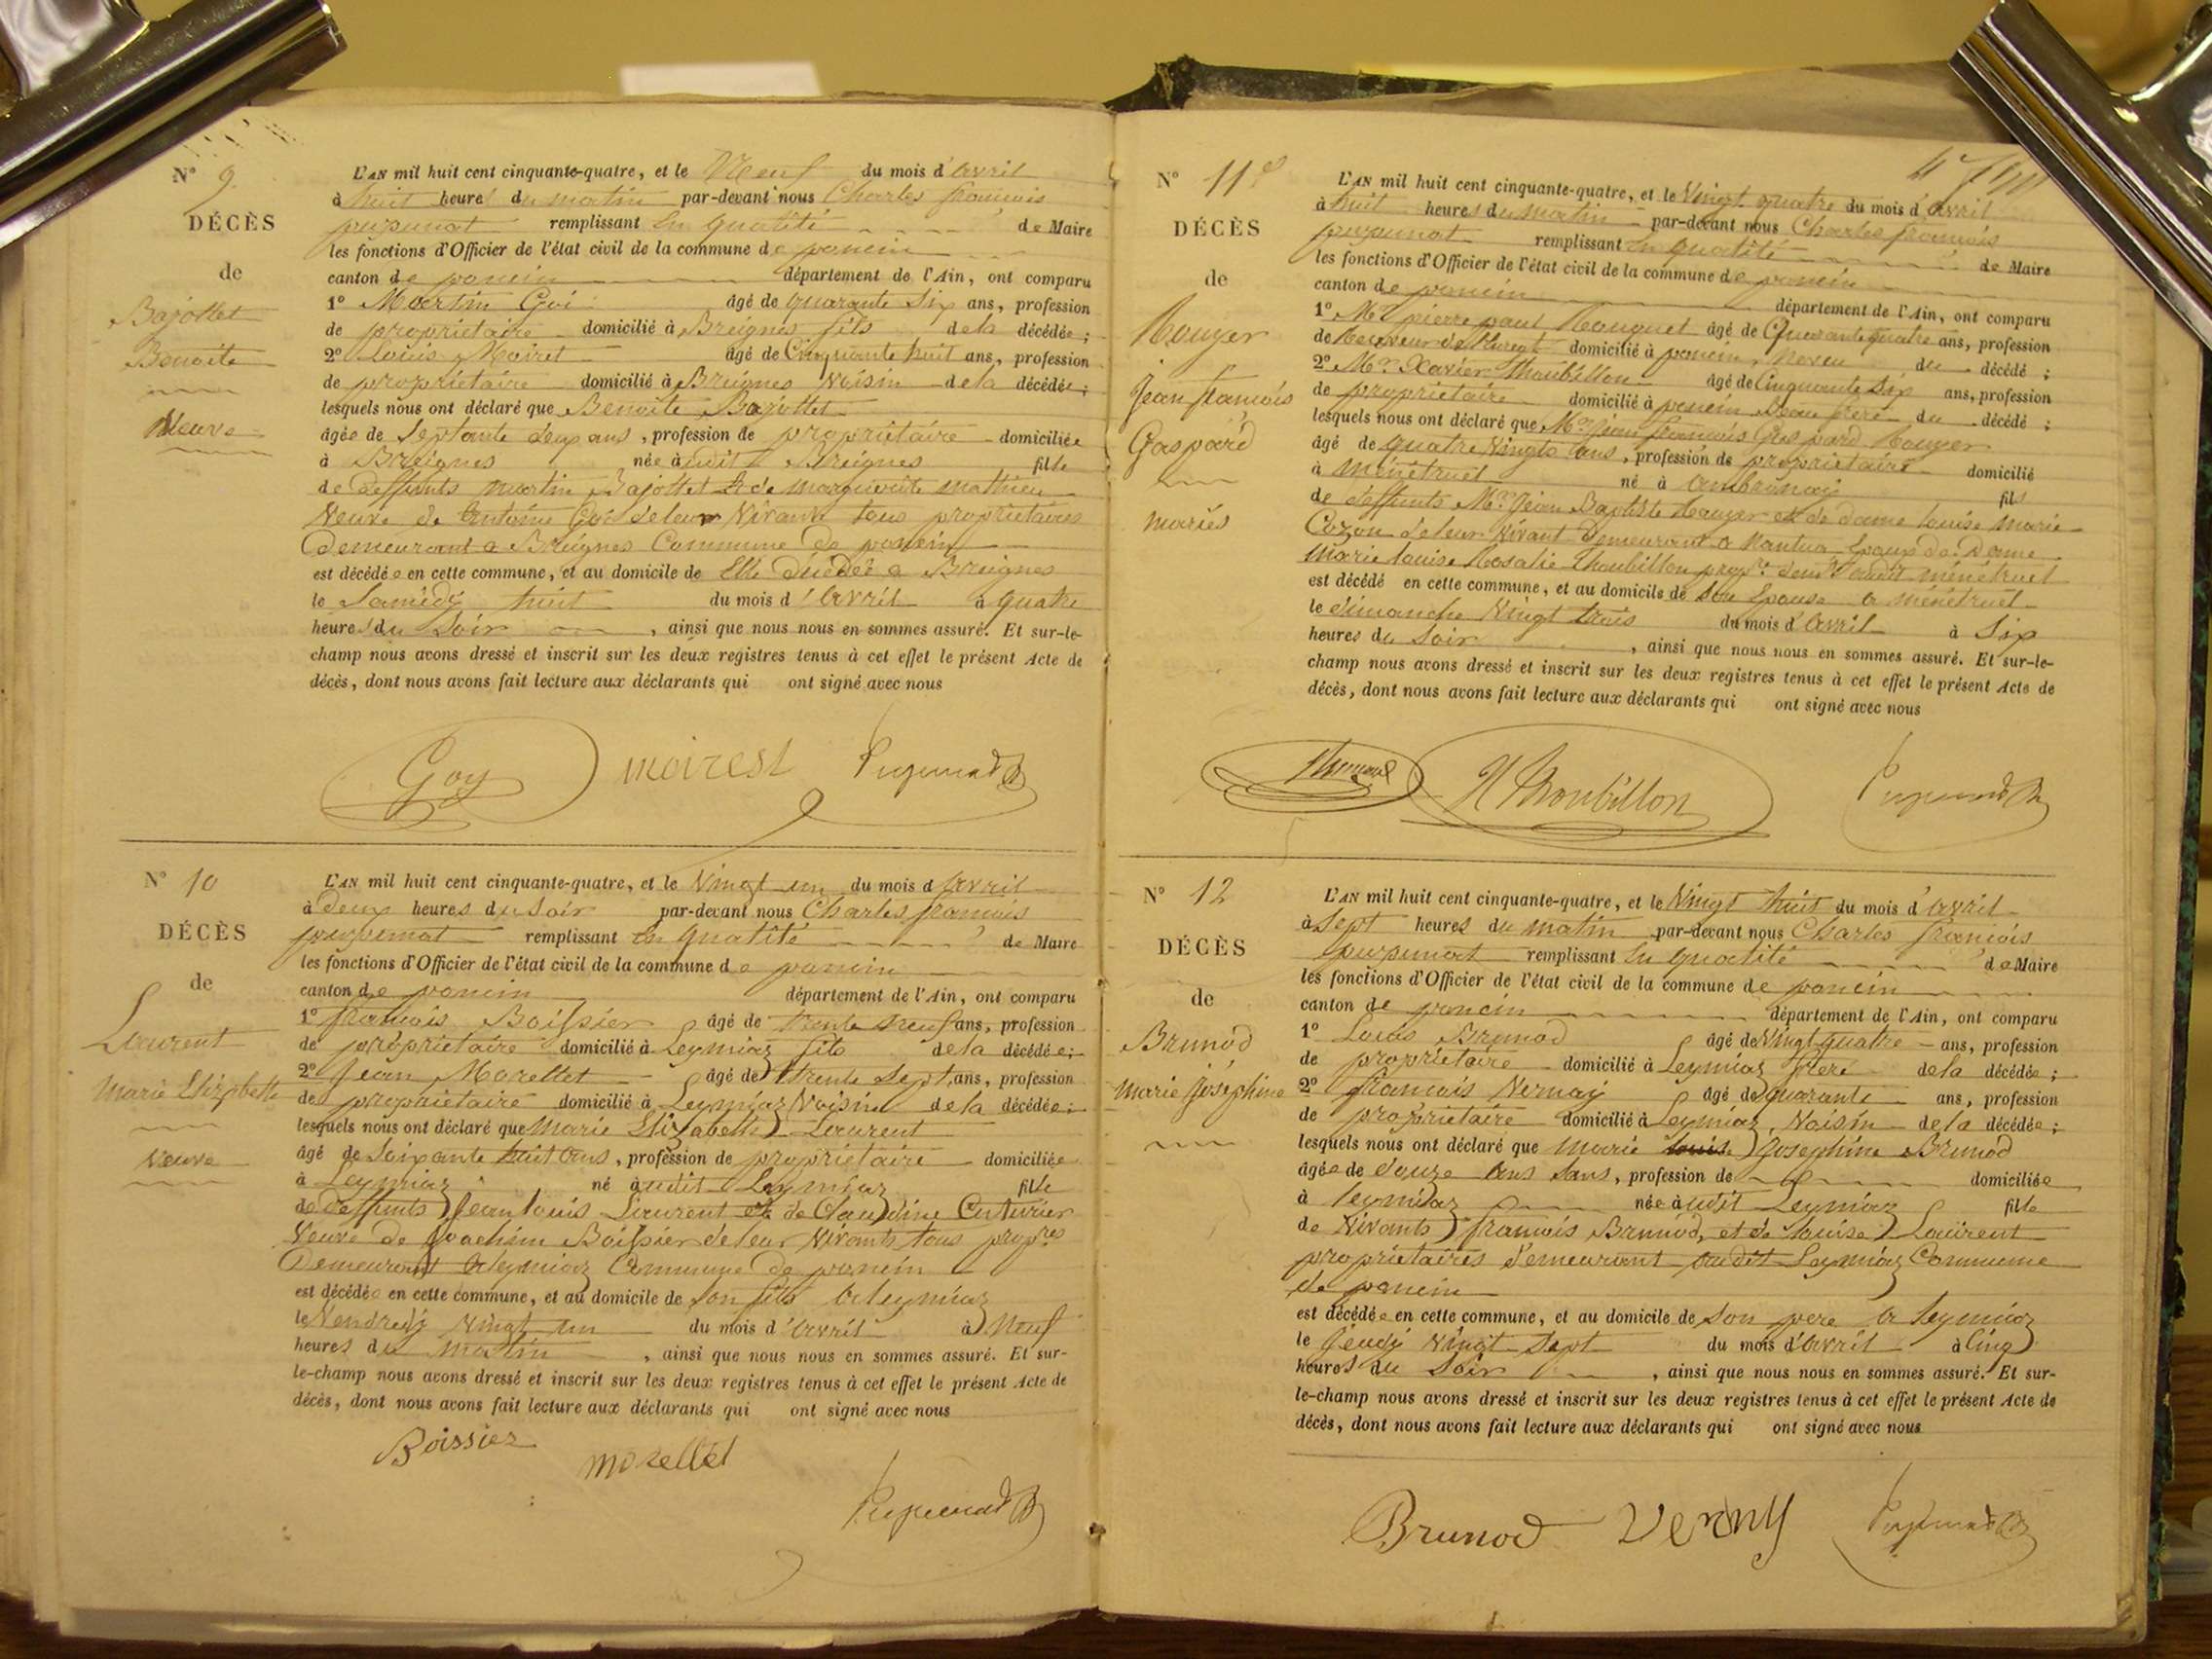 N° 9
DÉCÈS
de
Bajollet
Benoite
Veuve
L'AN mil huit cent cinquante-quatre, et le Neuf du mois d'avril
à huit heures du matin par-devant nous Charles françois
pupunat remplissant En qualité de Maire
les fonctions d'Officier de l'état civil de la commune de poncin
canton de poncin département de l'Ain, ont comparu
1° Martin Goi âgé de quarante Six ans, profession
de propriétaire domicilié à Breignes fils de la décédée ;
2° Louis Moiret âgé de Cinquante huit ans, profession
de propriétaire domicilié à Breignes Voisin de la décédée ;
lesquels nous ont déclaré que Benoite Bajollet
âgée de Septante deux ans, profession de propriétaire domiciliée
à Breignes née audit Breignes fille
de deffunts martin Bajollet Et de marguerite mathieu
Veuve de Antoine Goi de leur Vivant tous propriétaires
Demeurant a Breignes Commune de poncin
est décédée en cette commune, et au domicile de Elle décédée a Breignes
le Samedy huit du mois d'avril à quatre
heures du Soir, ainsi que nous nous en sommes assuré. Et sur-le-
champ nous avons dressé et inscrit sur les deux registres tenus à cet effet le présent Acte de
décès, dont nous avons fait lecture aux déclarants qui ont signé avec nous
Goy moirest Pupunat
N° 10
DÉCÈS
de
Laurent
Marie Elizabette
Veuve
L'AN mil huit cent cinquante-quatre, et le Vingt un du mois d'avril
à deux heures du Soir par-devant nous Charles françois
pupunat remplissant En qualité de Maire
les fonctions d'Officier de l'état civil de la commune de poncin
canton de poncin département de l'Ain, ont comparu
1° françois Boissier âgé de trente neuf ans, profession
de propriétaire domicilié à Leymiaz fils de la décédée ;
2° Jean Morellet âgé de trente Sept ans, profession
de propriétaire domicilié à Leymiaz Voisin de la décédée ;
lesquels nous ont déclaré que Marie Elizabette Laurent
âgé de Soixante huit ans, profession de propriétaire domiciliée
à Leymiaz né audit Leymiaz fille
de deffunts Jean louis Laurent et de Claudine Cuturier
Veuve de Joachim Boissier de leur Vivants tous propres
Demeurant a leymiaz Commune de poncin
est décédée en cette commune, et au domicile de Son fils a leymiaz
le Vendredi Vingt un du mois d'avril à Neuf
heures du matin, ainsi que nous nous en sommes assuré. Et sur-
le-champ nous avons dressé et inscrit sur les deux registres tenus à cet effet le présent Acte de
décès, dont nous avons fait lecture aux déclarants qui ont signé avec nous
Boissier morellet
Pupunat
N° 11
DÉCÈS
de
Rouyer
Jean françois
Gaspard
mariés
L'AN mil huit cent cinquante-quatre, et le Vingt quatre du mois d'avril
à huit heures du matin par-devant nous Charles françois
pupunat remplissant En qualité de Maire
les fonctions d'Officier de l'état civil de la commune de poncin
canton de poncin département de l'Ain, ont comparu
1° Mr pierre paul âgé de Quarante quatre ans, profession
de domicilié à poncin, neveu du décédé ;
2° Mr Xavier Thoubillon âgé de Cinquante Six ans, profession
de propriétaire domicilié à poncin Beau frere du décédé ;
lesquels nous ont déclaré que Mr Jean françois Gaspard Rouyer
âgé de quatre Vingts ans, profession de propriétaire domicilié
à ménétruel né à ambronay fils
de deffunts Mr Jean Baptiste Rouyer et de dame louise marie
Cozon de leur Vivant Demeurant a Nantua Epoux de Dame
Marie louise Rosalie Thoubillon propre demt audit ménétruel
est décédé en cette commune, et au domicile de Son Epouse a ménétruel
le dimanche Vingt trois du mois d'avril à Six
heures du Soir, ainsi que nous nous en sommes assuré. Et sur-le-
champ nous avons dressé et inscrit sur les deux registres tenus à cet effet le présent Acte de
décès, dont nous avons fait lecture aux déclarants qui ont signé avec nous
Thoubillon Pupunat
N° 12
DÉCÈS
de
Brunod
marie joséphine
L'AN mil huit cent cinquante-quatre, et le Vingt huit du mois d'avril
à Sept heures du matin par-devant nous Charles françois
pupunat remplissant En qualité de Maire
les fonctions d'Officier de l'état civil de la commune de poncin
canton de poncin département de l'Ain, ont comparu
1° Louis Brunod âgé de Vingt quatre ans, profession
de propriétaire domicilié à Leymiaz frere de la décédée ;
2° francois Vernay âgé de quarante ans, profession
de propriétaire domicilié à Leymiaz, Voisin de la décédée ;
lesquels nous ont déclaré que marie louise Josephine Brunod
âgée de douze ans Sans, profession de domiciliée
à leymiaz née audit Leymiaz fille
de Vivants francois Brunod, et de louise Laurent
propriétaires demeurant audit Leymiaz Commune
de poncin
est décédée en cette commune, et au domicile de son pere a leymiaz
le jeudy Vingt Sept du mois d'avril à Cinq
heures du Soir, ainsi que nous nous en sommes assuré. Et sur-
le-champ nous avons dressé et inscrit sur les deux registres tenus à cet effet le présent Acte de
décès, dont nous avons fait lecture aux déclarants qui ont signé avec nous
Brunod Verny Pupunat